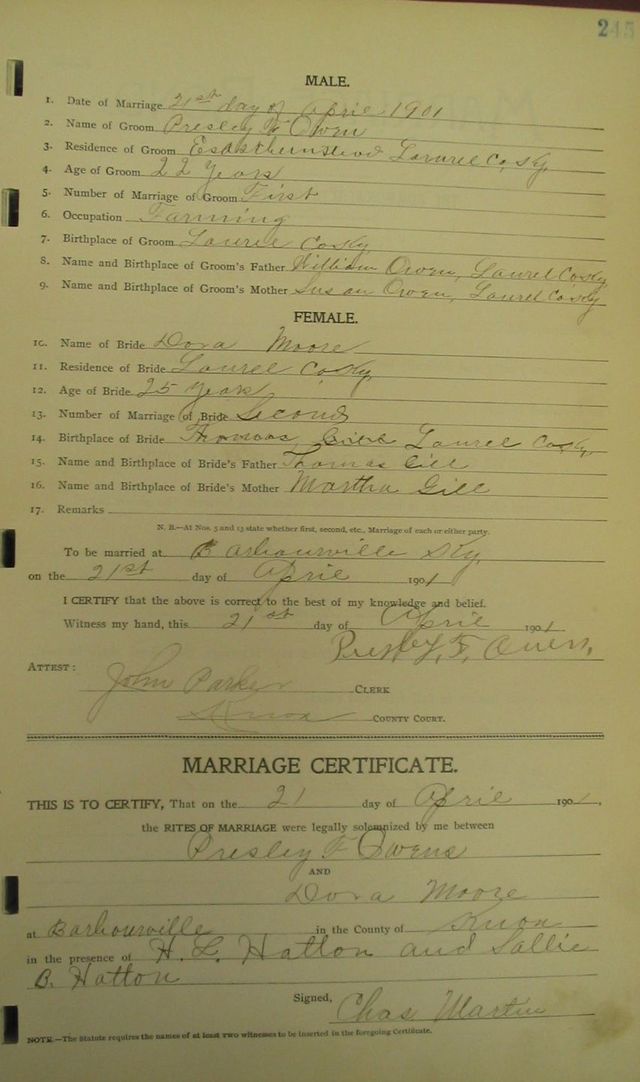 245
MALE.
1. Date of Marriage 21st day of April 1901
2. Name of Groom Presley F Owen
3. Residence of Groom Laurel Co, Ky,
4. Age of Groom 22 Years
5. Number of Marriage of Groom First
6. Occupation Farming
7. Birthplace of Groom Laurel Co Ky
8. Name and Birthplace of Groom's Father William Owen, Laurel Co Ky,
9. Name and Birthplace of Groom's Mother Susan Owen, Laurel Co Ky
FEMALE.
10. Name of Bride Dora Moore
11. Residence of Bride Laurel Co, Ky,
12. Age of Bride 25 Years
13. Number of Marriage of Bride Second
14. Birthplace of Bride Thomas Laurel Co Ky,
15. Name and Birthplace of Bride's Father Thomas Gill
16. Name and Birthplace of Bride's Mother Martha Gill
17. Remarks
N. B.—At Nos. 5 and 13 state whether first, second, etc., Marriage of each or either party.
To be married at Barbourville Ky,
on the 21st day of April 1901
I CERTIFY that the above is correct to the best of my knowledge and belief.
Witness my hand, this 21st day of April 1901
Presley, F, Owen.
ATTEST:
John Parker CLERK
Knox COUNTY COURT.
MARRIAGE CERTIFICATE.
THIS IS TO CERTIFY, That on the 21 day of April 1901,
the RITES OF MARRIAGE were legally solemnized by me between
Presley F Owens
AND
Dora Moore
at Barbourville in the County of Knox
in the presence of H. L. Hatton and Sallie
B. Hatton
Signed, Chas Martin
NOTE.—The Statute requires the names of at least two witnesses to be inserted in the foregoing Certificate.